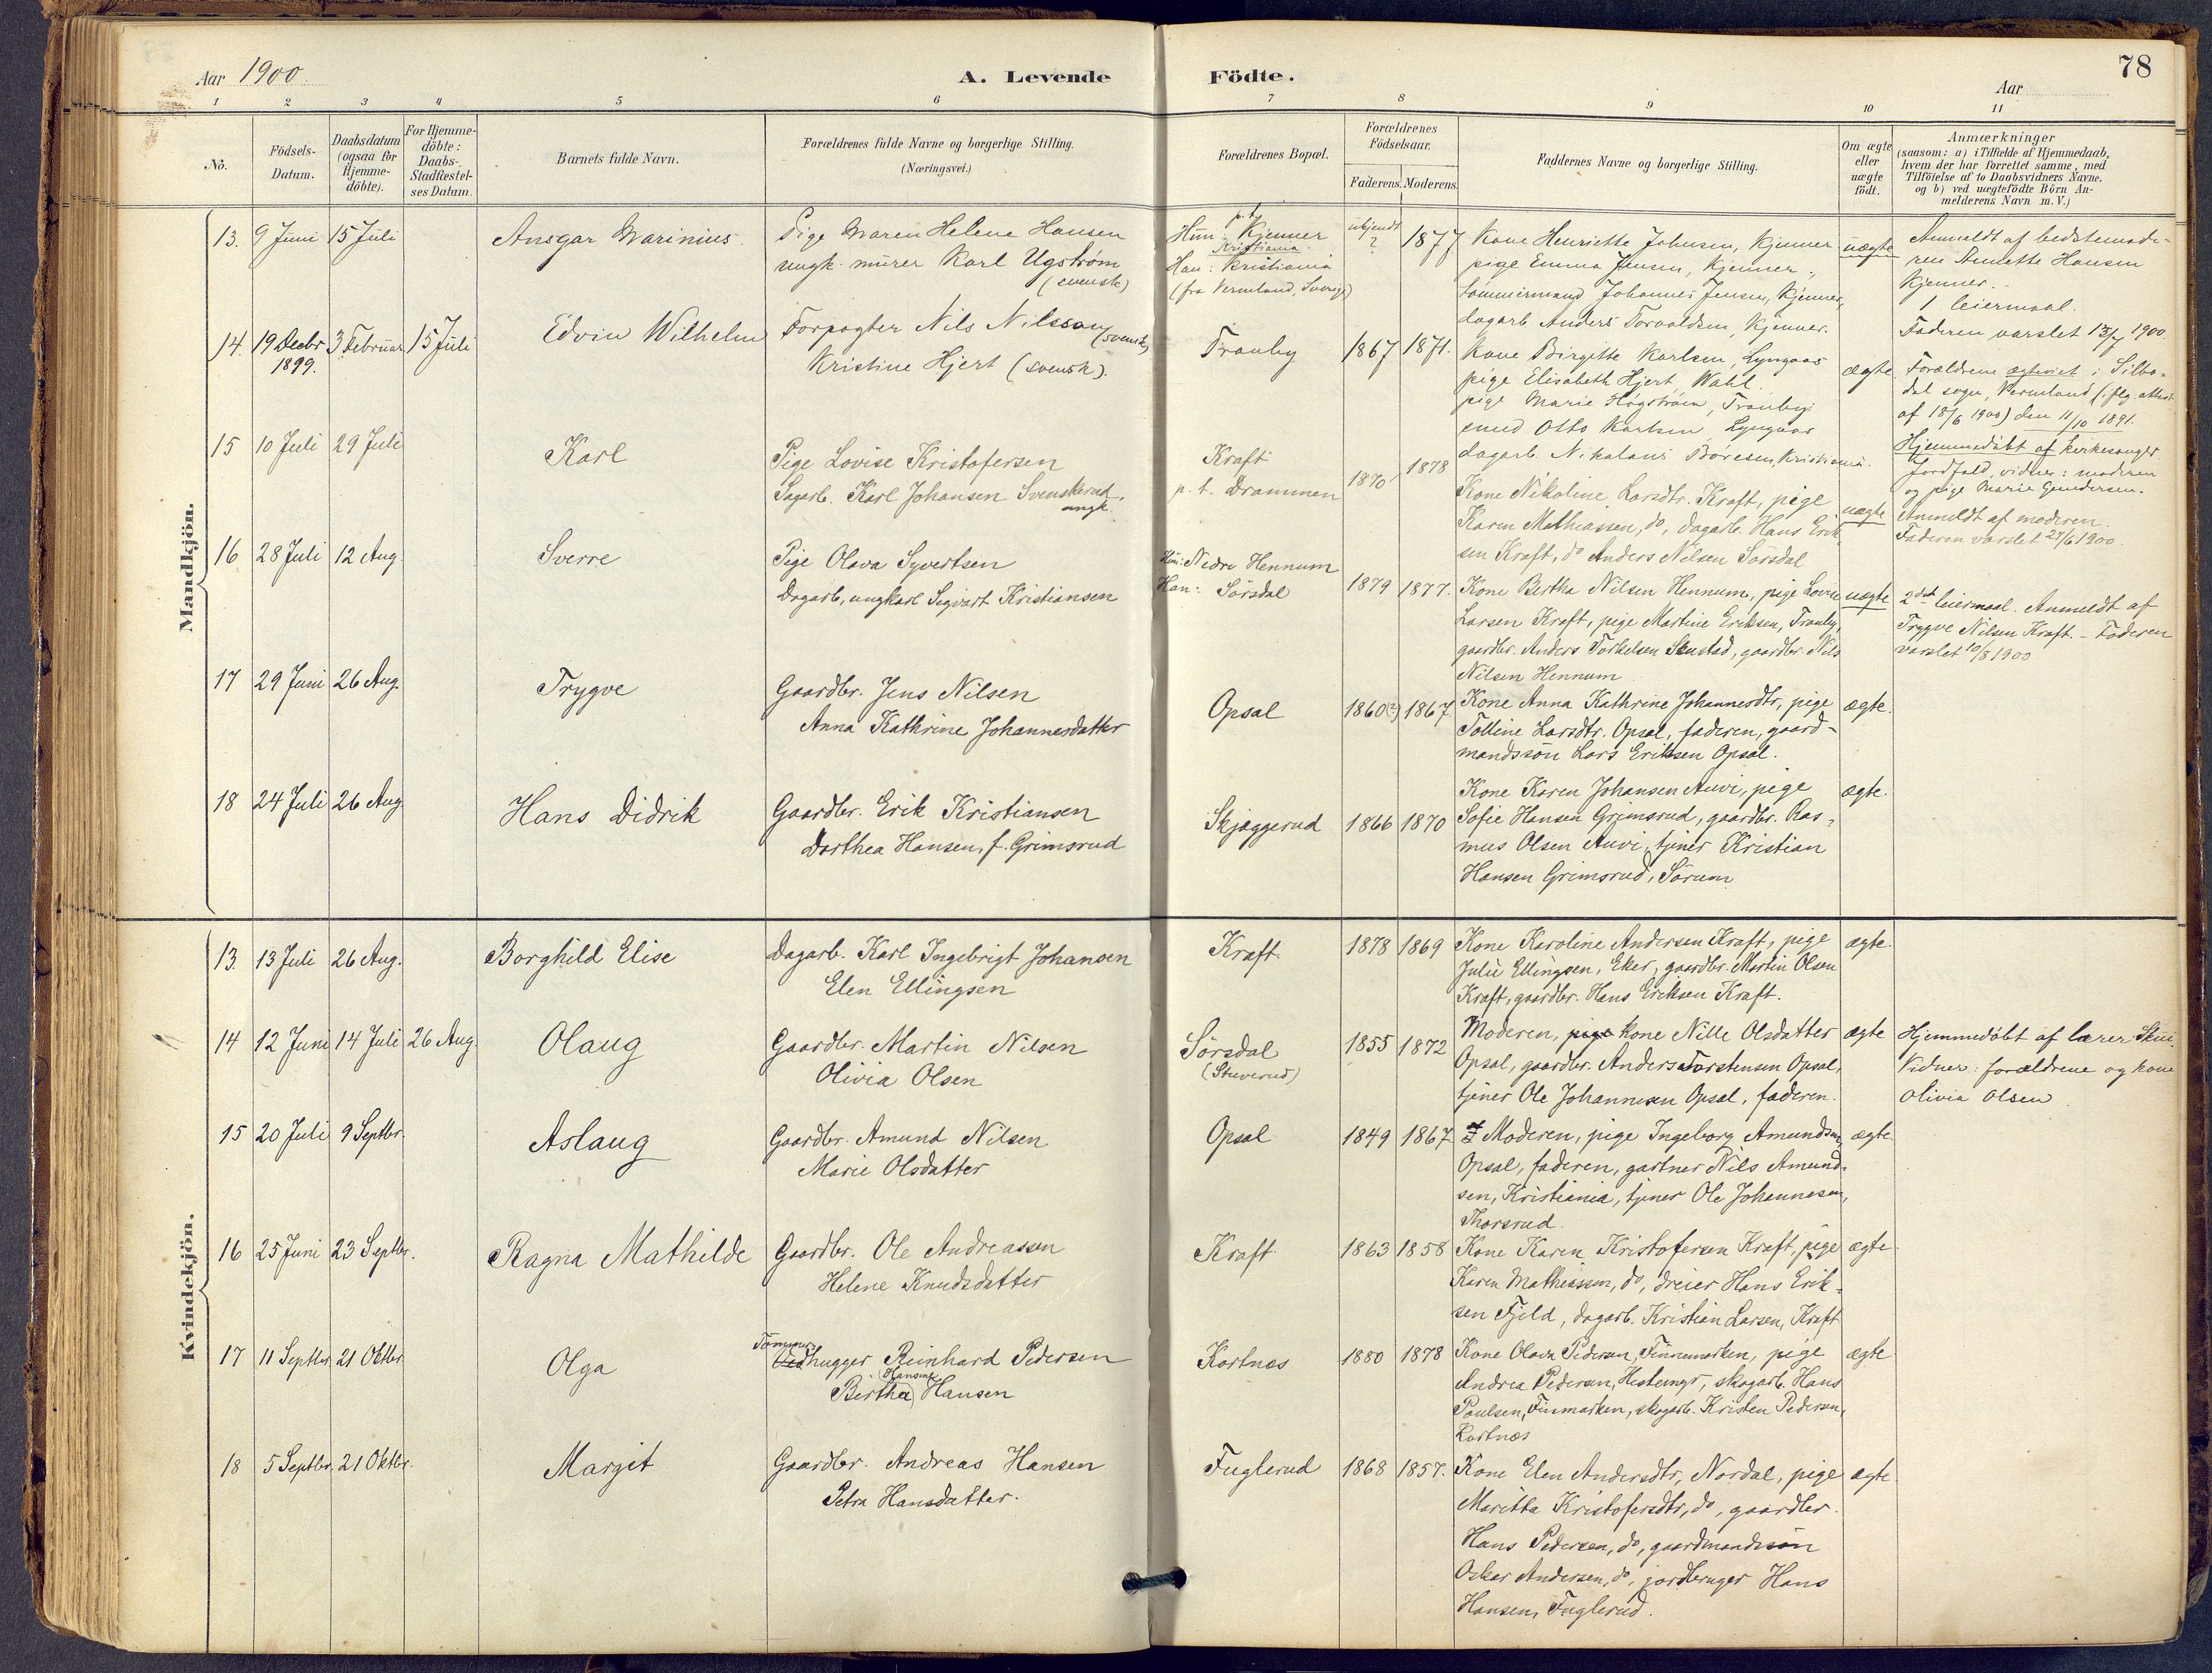 Aar 1900. A. Levende Födte. Aar 78
1 2 3 4 5 6 7 8 9 10 11
No.
Födsels-Datum.
Daabsdatum (ogsaa for Hjemme-döbte).
For Hjemme-döbte: Daabs-Stadfæstel-ses Datum.
Barnets fulde Navn.
Forældrenes fulde Navne og borgerlige Stilling. (Næringsvei.)
Forældrenes Bopæl.
Forældrenes Födselsaar.
Faderens. Moderens.
Faddernes Navne og borgerlige Stilling.
Om ægte eller uægte födt.
Anmærkninger
(saasom: a) i Tilfælde af Hjemmedaab,
hvem der har forrettet samme, med
Tilföielse af to Daabsvidners Navne,
og b) ved uægtefödte Börn An-
melderens Navn m. V.)
Mandkjön.
13. 9 Juni 15 Juli
Ansgar Marinius.
Pige Maren Helene Hansen
ungk. murer Karl Ugström
(svensk)
Hun: p.t. Kjenner
Kristiania.
Han: Kristiania
(fra Vermland, Sverige)
ukjendt ? 1877
Kone Henriette Johnsen, Kjenner
pige Emma Jensen, Kjenner,
tømmermand Johannes Jensen, Kjenner,
dagarb. Anders Torvaldsen, Kjenner.
uægte
Anmeldt af bedstemode-
ren Annette Hansen
Kjenner.
1. leiermaal.
Faderen varslet 13/7 1900.
14. 19 Decbr 1899. 3 Februar 15 Juli
Edvin Wilhelm
Forpagter Nils Nilsson (svensk)
Kristine Hjert (svensk).
Tranby
1867 1871.
Kone Birgitte Karlsen, Lyngaas
pige Elisabeth Hjert, Wahl.
pige Marie Högström, Tranby
smed Otto Karlsen, Lyngaas
dagarb. Nikolaus Böresen, Kristiania.
ægte
Forældrene ægteviet i Silbo-
dal sogn, Vermland (iflg. attest
af 18/6 1900) den 11/10 1891.
Hjemmedöbt af kirkesanger
Jordfald, vidner: moderen
og pige Marie Gundersen.
15 10 Juli 29 Juli
Karl
Pige Lovise Kristofersen
Sagarb. Karl Johansen Svenskerud,
ungk.
Kraft
p.t. Drammen
1870 1878
Kone Nikoline Larsdtr. Kraft, pige
Karen Mathiassen, do, dagarb. Hans Erik-
sen Kraft, do Anders Nilsen Sörsdal
uægte
Anmeldt af moderen.
Faderen varslet 27/6 1900.
16 28 Juli 12 Aug.
Sverre
Pige Olava Syvertsen
Dagarb., ungkarl Sigvart Kristiansen
Hun: Nedre Hennum
Han: Sörsdal
1879 1877.
Kone Bertha Nilsen Hennum, pige Lovise
Larsen Kraft, pige Martine Eriksen, Tranby,
gaardbr. Anders Torkelsen Skustad, gaardbr. Nils
Nilsen Hennum
uægte
2det leiermaal. Anmeldt af
Trygve Nilsen Kraft. - Faderen
varslet 10/8 1900
17 29 Juni 26 Aug.
Trygve
Gaardbr. Jens Nilsen
Anna Kathrine Johannesdatter
Opsal
1860(?) 1867
Kone Anna Kathrine Johannesdtr, pige
Tolline Larsdtr. Opsal, faderen, gaard-
mandssön Lars Eriksen Opsal.
ægte.
18 24 Juli 26 Aug.
Hans Didrik
Gaardbr. Erik Kristiansen
Dorthea Hansen, f. Grimsrud
Skjæggerud
1866 1870
Kone Karen Johansen Auvi, pige
Sofie Hansen Grimsrud, gaardbr. Ras-
mus Olsen Auvi, tjener Kristian
Hansen Grimsrud, Sörum
ægte.
Kvindekjön.
13. 13 Juli 26 Aug.
Borghild Elise
Dagarb. Karl Ingebrigt Johansen
Elen Ellingsen
Kraft.
1878 1869
Kone Karoline Andersen Kraft, pige
Julie Ellingsen, Eker, gaardbr. Martin Olsen
Kraft, gaardbr. Hans Eriksen Kraft.
ægte.
14 12 Juni 14 Juli 26 Aug.
Olaug
Gaardbr. Martin Nilsen
Olivia Olsen
Sörsdal
(Stuverud)
1855 1872
Moderen, pige kone Nille Olsdatter
Opsal, gaardbr. Anders Torstensen Opsal,
tjener Ole Johannesen Opsal, faderen.
ægte
Hjemmedöbt af lærer Skui.
Vidner: forældrene og kone
Olivia Olsen
15 20 Juli 9 Septbr.
Aslaug
Gaardbr. Amund Nilsen
Marie Olsdatter
Opsal
1849 1867
Moderen, pige Ingeborg Amundsen
Opsal, faderen, gartner Nils Amund-
sen, Kristiania, tjener Ole Johannesen,
Thorsrud.
ægte.
16 25 Juni 23 Septbr.
Ragna Mathilde
Gaardbr. Ole Andreassen
Helene Knudsdatter
Kraft
1863 1858
Kone Karen Kristofersen Kraft, pige
Karen Mathiassen, do, dreier Hans Erik-
sen Fjeld, dagarb. Kristian Larsen, Kraft
ægte.
17 11 Septbr. 21 Oktbr.
Olga
Tömmer
Vedhugger Reinhard Pedersen
Hansine
Bertha Hansen
Kortnæs
1880 1878
Kone Olava Pedersen, Finnemarken, pige
Andrea Pedersen, Hestengr, skogarb. Hans
Poulsen, Finmarken, skogarb. Kristen Pedersen,
Kortnæs
ægte
18 5 Septbr. 21 Oktbr.
Margit
Gaardbr. Andreas Hansen
Petra Hansdatter.
Fuglerud
1868 1857.
Kone Elen Andersdtr, Nordal, pige
Maritta Kristofersdtr, do, gaardbr.
Hans Pedersen, do, gaardmandssön
Oskar Andersen, do, jordbruger Hans
Hansen, Fuglerud.
ægte